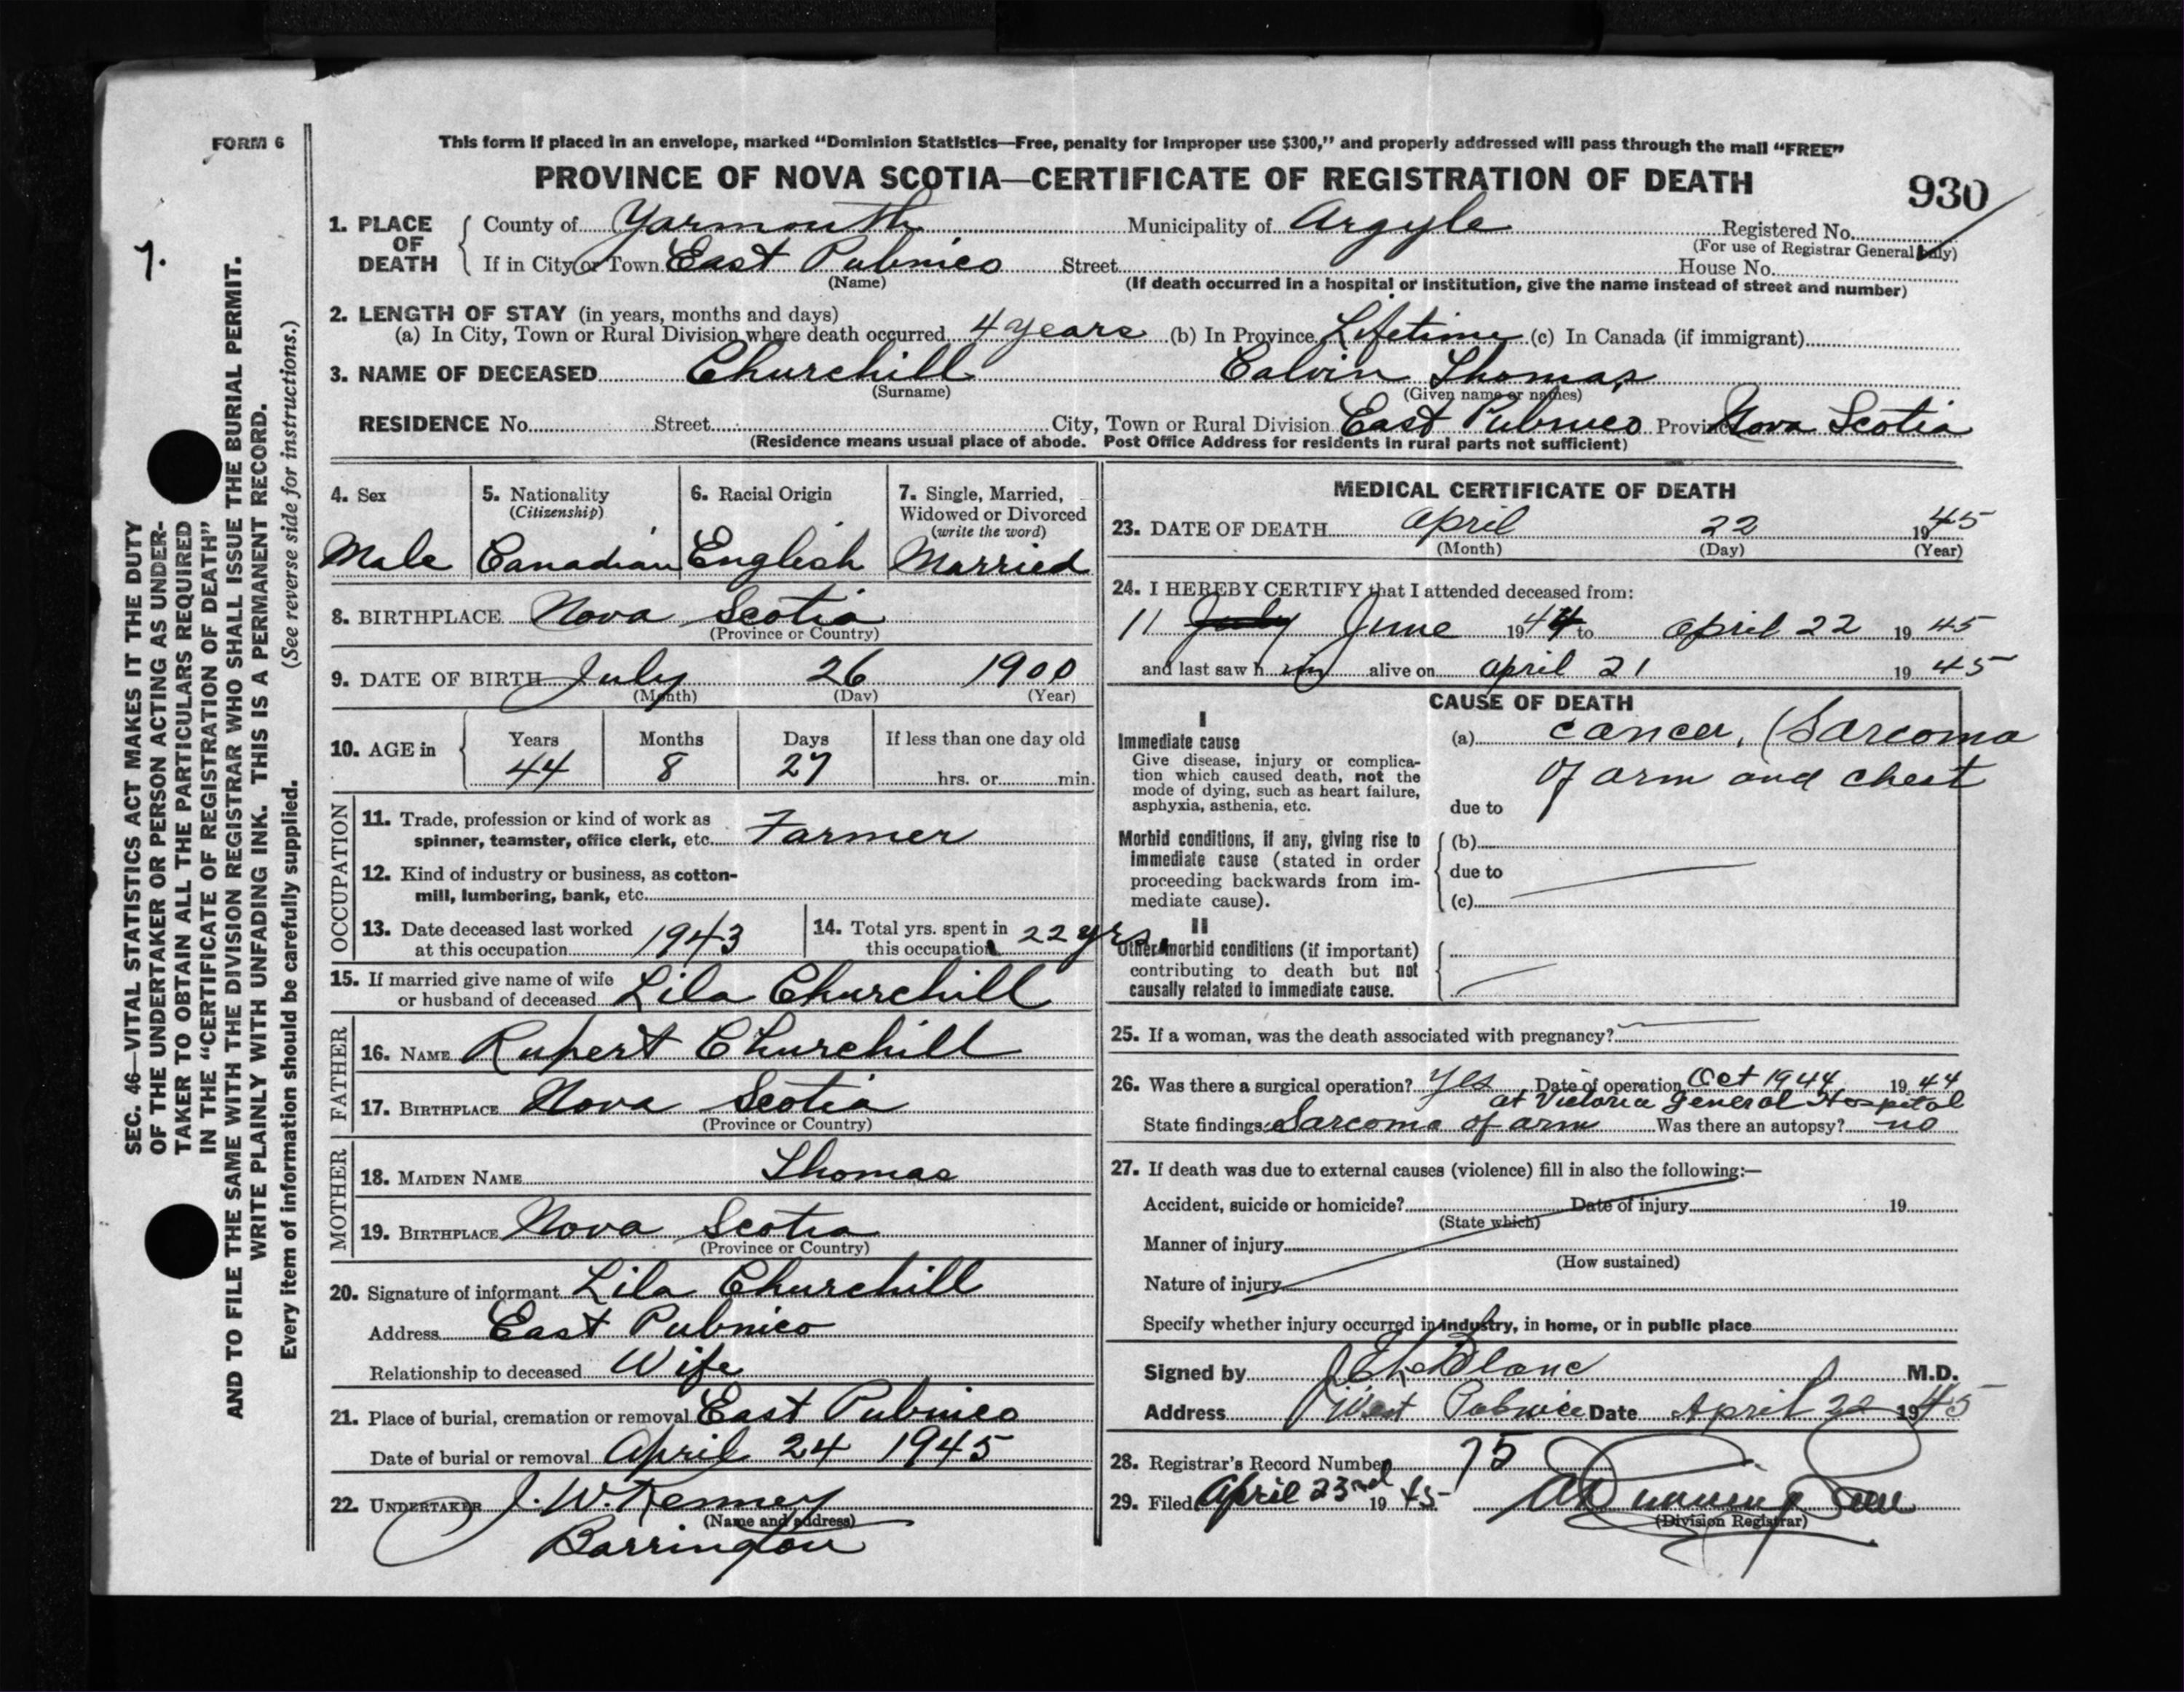 FORM 6
This form if placed in an envelope, marked "Dominion Statistics—Free, penalty for improper use $300," and properly addressed will pass through the mail "FREE"
PROVINCE OF NOVA SCOTIA—CERTIFICATE OF REGISTRATION OF DEATH
930
7.
SEC. 46—VITAL STATISTICS ACT MAKES IT THE DUTY
OF THE UNDERTAKER OR PERSON ACTING AS UNDER-
TAKER TO OBTAIN ALL THE PARTICULARS REQUIRED
IN THE "CERTIFICATE OF REGISTRATION OF DEATH"
AND TO FILE THE SAME WITH THE DIVISION REGISTRAR WHO SHALL ISSUE THE BURIAL PERMIT.
WRITE PLAINLY WITH UNFADING INK. THIS IS A PERMANENT RECORD.
Every item of information should be carefully supplied. (See reverse side for instructions.)
1. PLACE OF DEATH County of Yarmouth Municipality of Argyle Registered No.
(For use of Registrar General only)
If in City or Town East Pubnico Street House No.
(Name) (If death occurred in a hospital or institution, give the name instead of street and number)
2. LENGTH OF STAY (in years, months and days)
(a) In City, Town or Rural Division where death occurred 4 years (b) In Province Lifetime (c) In Canada (if immigrant)
3. NAME OF DECEASED Churchill Calvin Thomas
(Surname) (Given name or names)
RESIDENCE No. Street City, Town or Rural Division East Pubnico Province Nova Scotia
(Residence means usual place of abode. Post Office Address for residents in rural parts not sufficient)
4. Sex 5. Nationality (Citizenship) 6. Racial Origin 7. Single, Married, Widowed or Divorced (write the word)
Male Canadian English Married
8. BIRTHPLACE Nova Scotia
(Province or Country)
9. DATE OF BIRTH July 26 1900
(Month) (Day) (Year)
10. AGE in Years Months Days If less than one day old
44 8 27 hrs. or min.
OCCUPATION
11. Trade, profession or kind of work as
spinner, teamster, office clerk, etc. Farmer
12. Kind of industry or business, as cotton-
mill, lumbering, bank, etc.
13. Date deceased last worked at this occupation 1943
14. Total yrs. spent in this occupation 22 yrs.
15. If married give name of wife
or husband of deceased Lila Churchill
FATHER
16. NAME Rupert Churchill
17. BIRTHPLACE Nova Scotia
(Province or Country)
MOTHER
18. MAIDEN NAME Thomas
19. BIRTHPLACE Nova Scotia
(Province or Country)
20. Signature of informant Lila Churchill
Address East Pubnico
Relationship to deceased Wife
21. Place of burial, cremation or removal East Pubnico
Date of burial or removal April 24 1945
22. UNDERTAKER J. W. Kenney
(Name and address)
Barrington
MEDICAL CERTIFICATE OF DEATH
23. DATE OF DEATH April 22 1945
(Month) (Day) (Year)
24. I HEREBY CERTIFY that I attended deceased from:
11 July June 1944 to April 22 1945
and last saw h im alive on April 21 1945
CAUSE OF DEATH
I
Immediate cause
Give disease, injury or complica-
tion which caused death, not the
mode of dying, such as heart failure,
asphyxia, asthenia, etc.
(a) cancer, (Sarcoma
of arm and chest
due to
Morbid conditions, if any, giving rise to
immediate cause (stated in order
proceeding backwards from im-
mediate cause).
(b)
due to
(c)
II
Other morbid conditions (if important)
contributing to death but not
causally related to immediate cause.
25. If a woman, was the death associated with pregnancy?
26. Was there a surgical operation? Yes Date of operation Oct 1944 1944
at Victoria General Hospital
State findings Sarcoma of arm Was there an autopsy? no
27. If death was due to external causes (violence) fill in also the following:—
Accident, suicide or homicide? Date of injury 19
(State which)
Manner of injury
(How sustained)
Nature of injury
Specify whether injury occurred in industry, in home, or in public place
Signed by LeBlanc M.D.
Address West Pubnico Date April 22 1945
28. Registrar's Record Number 75
29. Filed April 23rd 1945
(Division Registrar)